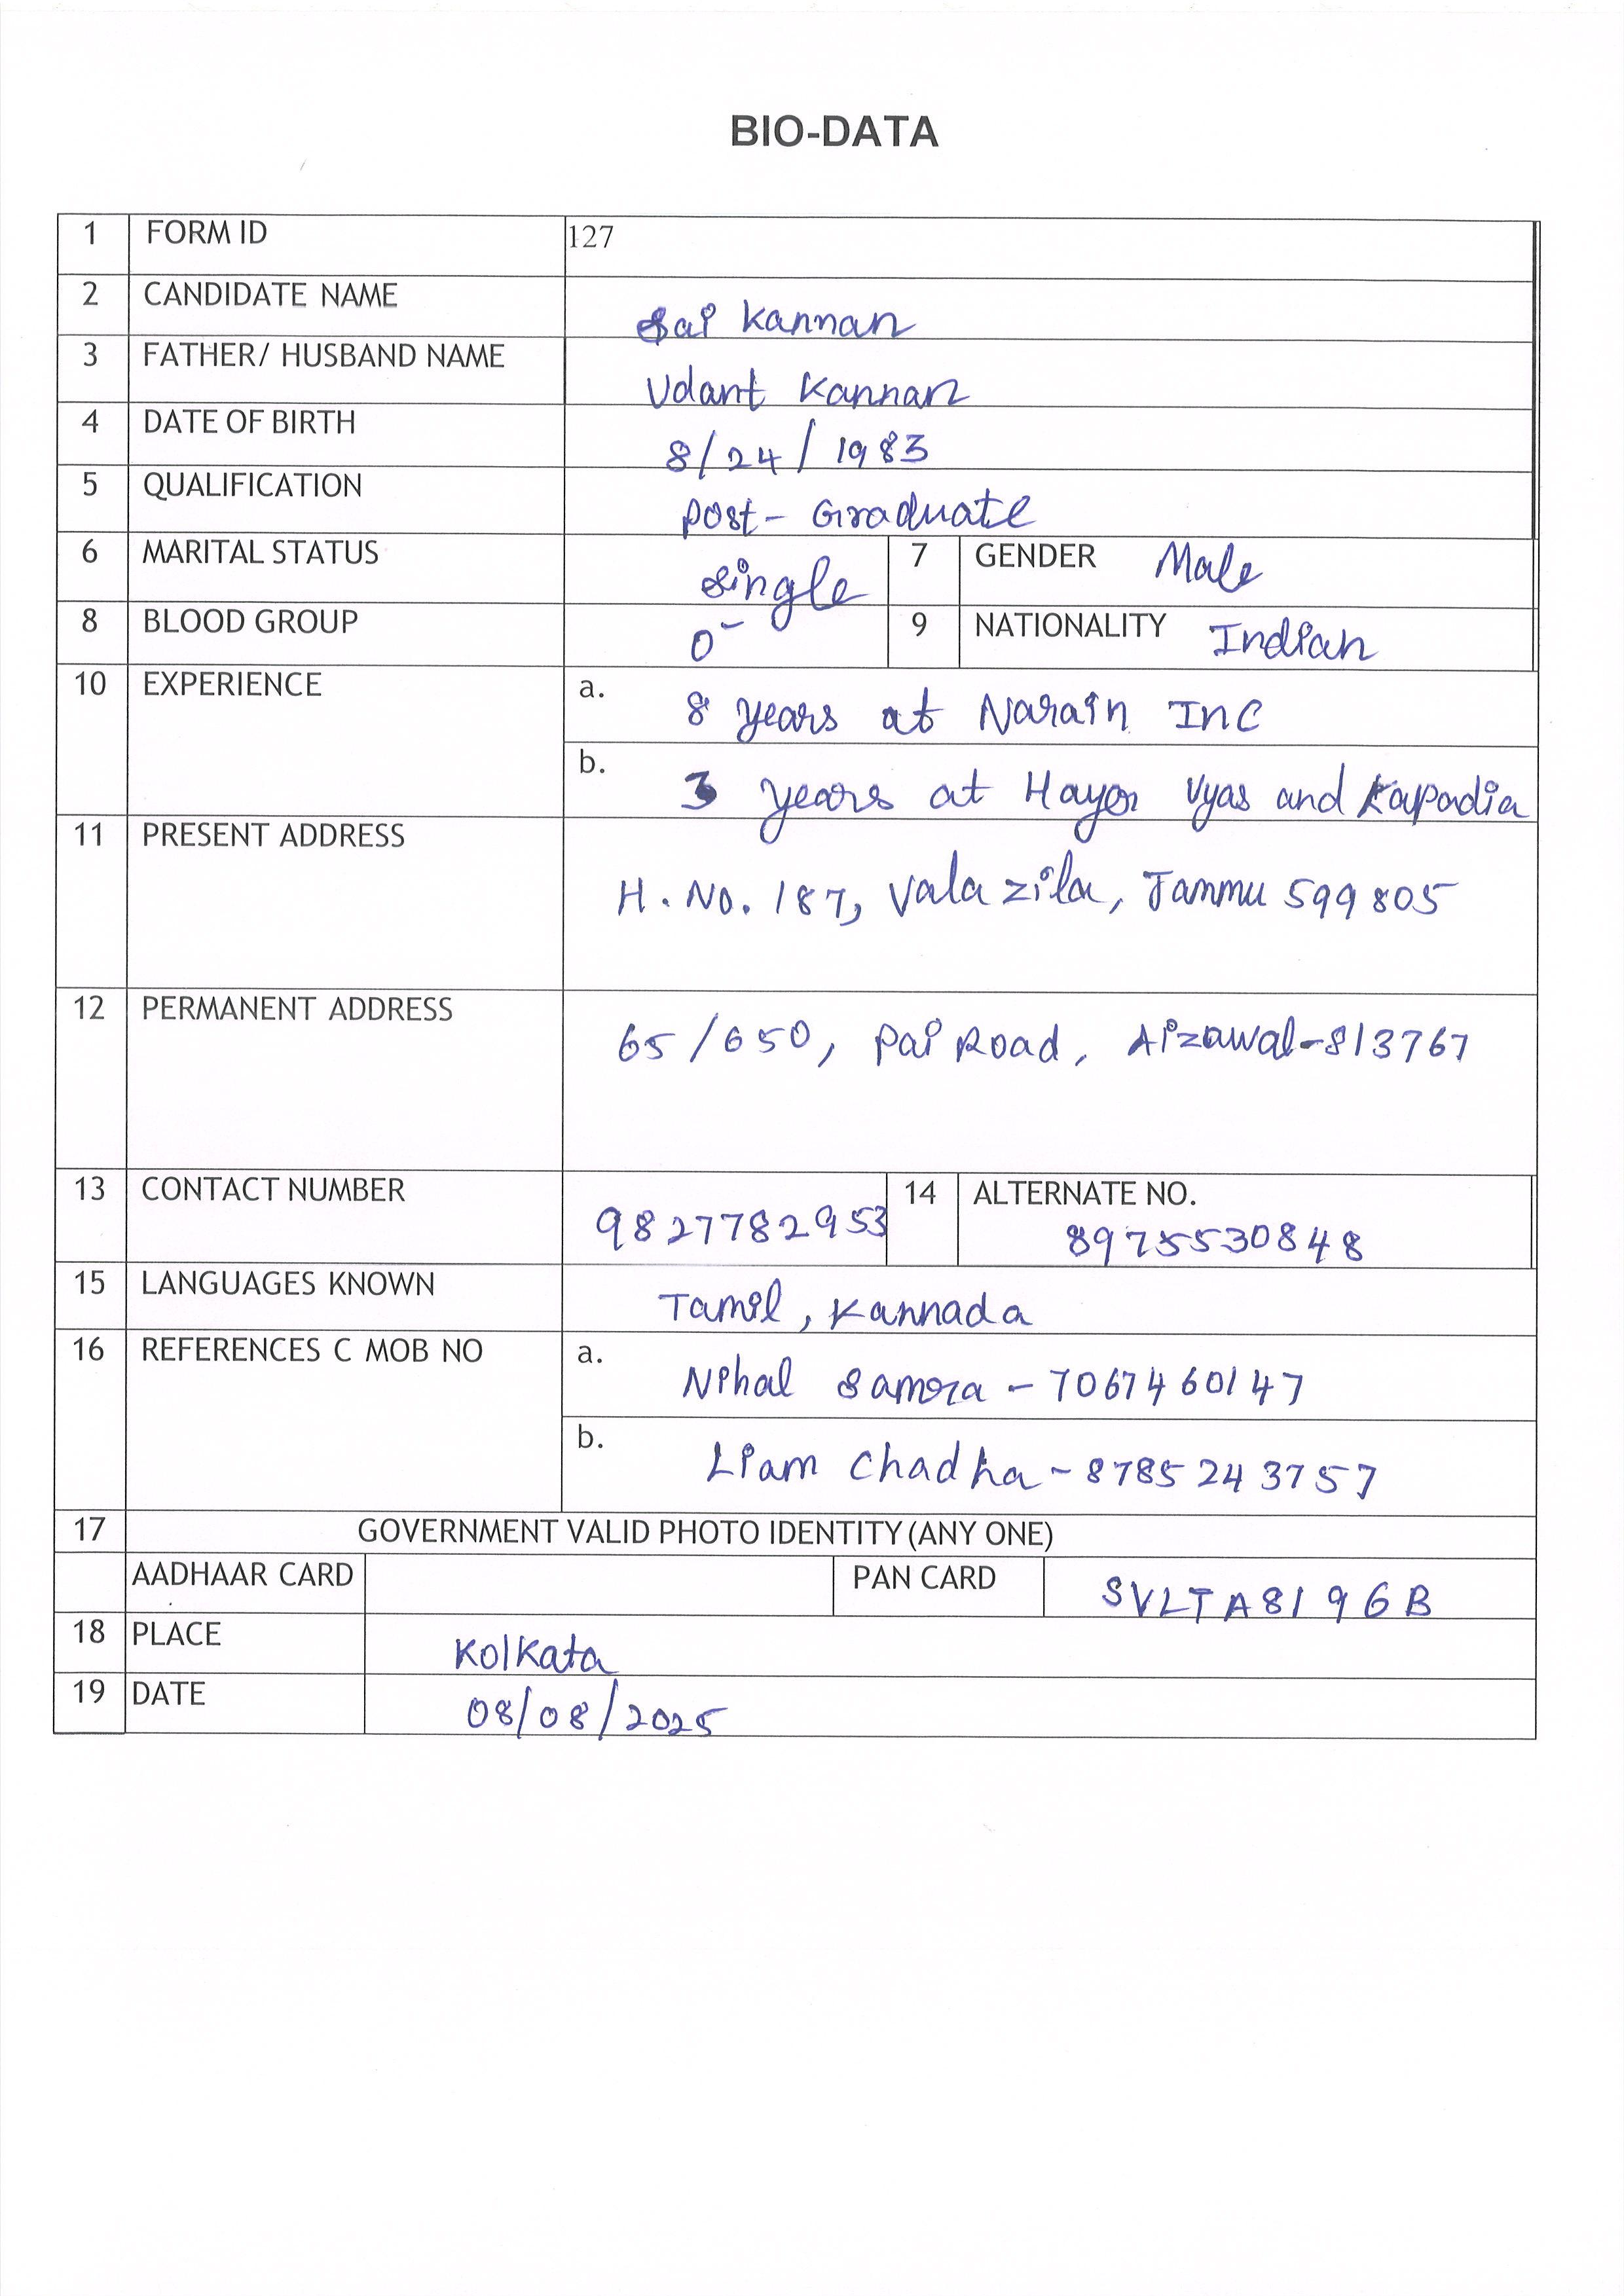 BIO-DATA
1 FORM ID 127
2 CANDIDATE NAME Sai Kannan
3 FATHER/ HUSBAND NAME Udant Kannan
4 DATE OF BIRTH 8/24/1983
5 QUALIFICATION Post-Graduate
6 MARITAL STATUS Single 7 GENDER Male
8 BLOOD GROUP O- 9 NATIONALITY Indian
10 EXPERIENCE a. 8 years at Narain Inc
b. 3 years at Hayer Vyas and Kapadia
11 PRESENT ADDRESS
H. No. 187, Vala Zila, Jammu 599805
12 PERMANENT ADDRESS
65/650, Pai Road, Aizawal-813767
13 CONTACT NUMBER 9827782953 14 ALTERNATE NO.
8975530848
15 LANGUAGES KNOWN Tamil, Kannada
16 REFERENCES C MOB NO a. Nihal Samra - 7067460147
b. Liam Chadha - 8785243757
17 GOVERNMENT VALID PHOTO IDENTITY (ANY ONE)
AADHAAR CARD PAN CARD SVLTA8196B
18 PLACE Kolkata
19 DATE 08/08/2025